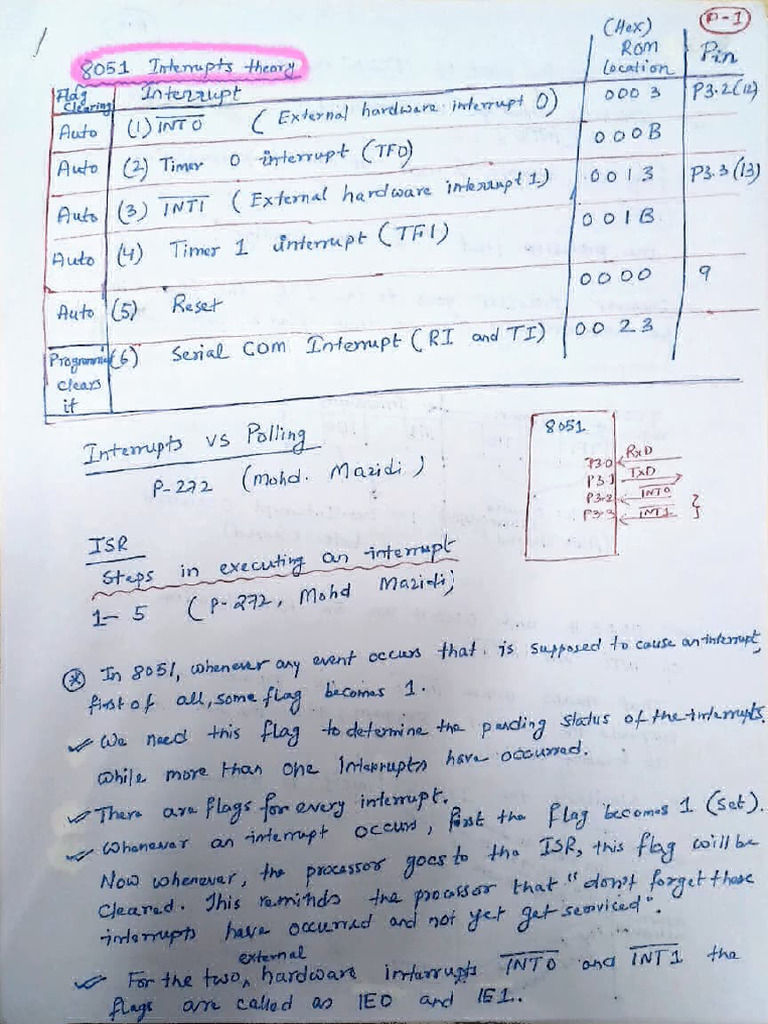 P-1
8051 Interrupts theory
(Hex) ROM Location
Pin
Flag Clearing Interrupt
Auto (1) I̅N̅T̅0̅ ( External hardware interrupt 0) 0003 P3.2(12)
Auto (2) Timer 0 interrupt (TF0) 000B
Auto (3) I̅N̅T̅1̅ ( External hardware interrupt 1) 0013 P3.3(13)
Auto (4) Timer 1 interrupt (TF1) 001B
Auto (5) Reset 0000 9
(6) Serial COM Interrupt (RI and TI) 0023
clears
it
Interrupts vs Polling
P-272 (Mohd. Mazidi)
8051
P3.0 RxD
P3.1 TxD
P3.2 I̅N̅T̅0̅
P3.3 I̅N̅T̅1̅
ISR
Steps in executing an interrupt
1-5 (P-272, Mohd Mazidi)
In 8051, whenever any event occurs that is supposed to cause an interrupt,
first of all, some flag becomes 1.
✓ We need this flag to determine the pending status of the interrupts.
while more than one Interrupts have occurred.
✓ There are flags for every interrupt.
✓ Whenever an interrupt occurs, first the flag becomes 1 (set).
Now whenever, the processor goes to the ISR, this flag will be
cleared. This reminds the processor that "don't forget these
interrupts have occurred and not yet get serviced".
✓ For the two external hardware interrupts I̅N̅T̅0̅ and I̅N̅T̅1̅ the
flags are called as IE0 and IE1.